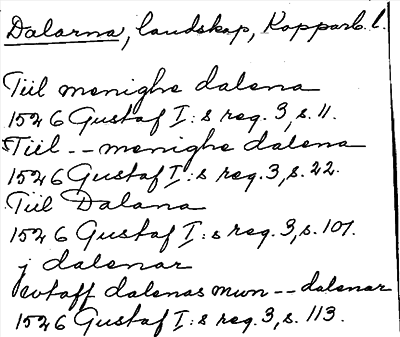 Dalarna, landskap, Kopparb. l.
Tiil menighe dalena
1526 Gustaf I:s reg. 3, s. 11.
Tiil -- menighe dalena
1526 Gustaf I:s reg. 3, s. 22.
Tiil Dalana
1526 Gustaf I:s reg. 3, s. 101.
j dalenar
aff dalenas mwn -- dalenar
1526 Gustaf I:s reg. 3, s. 113.